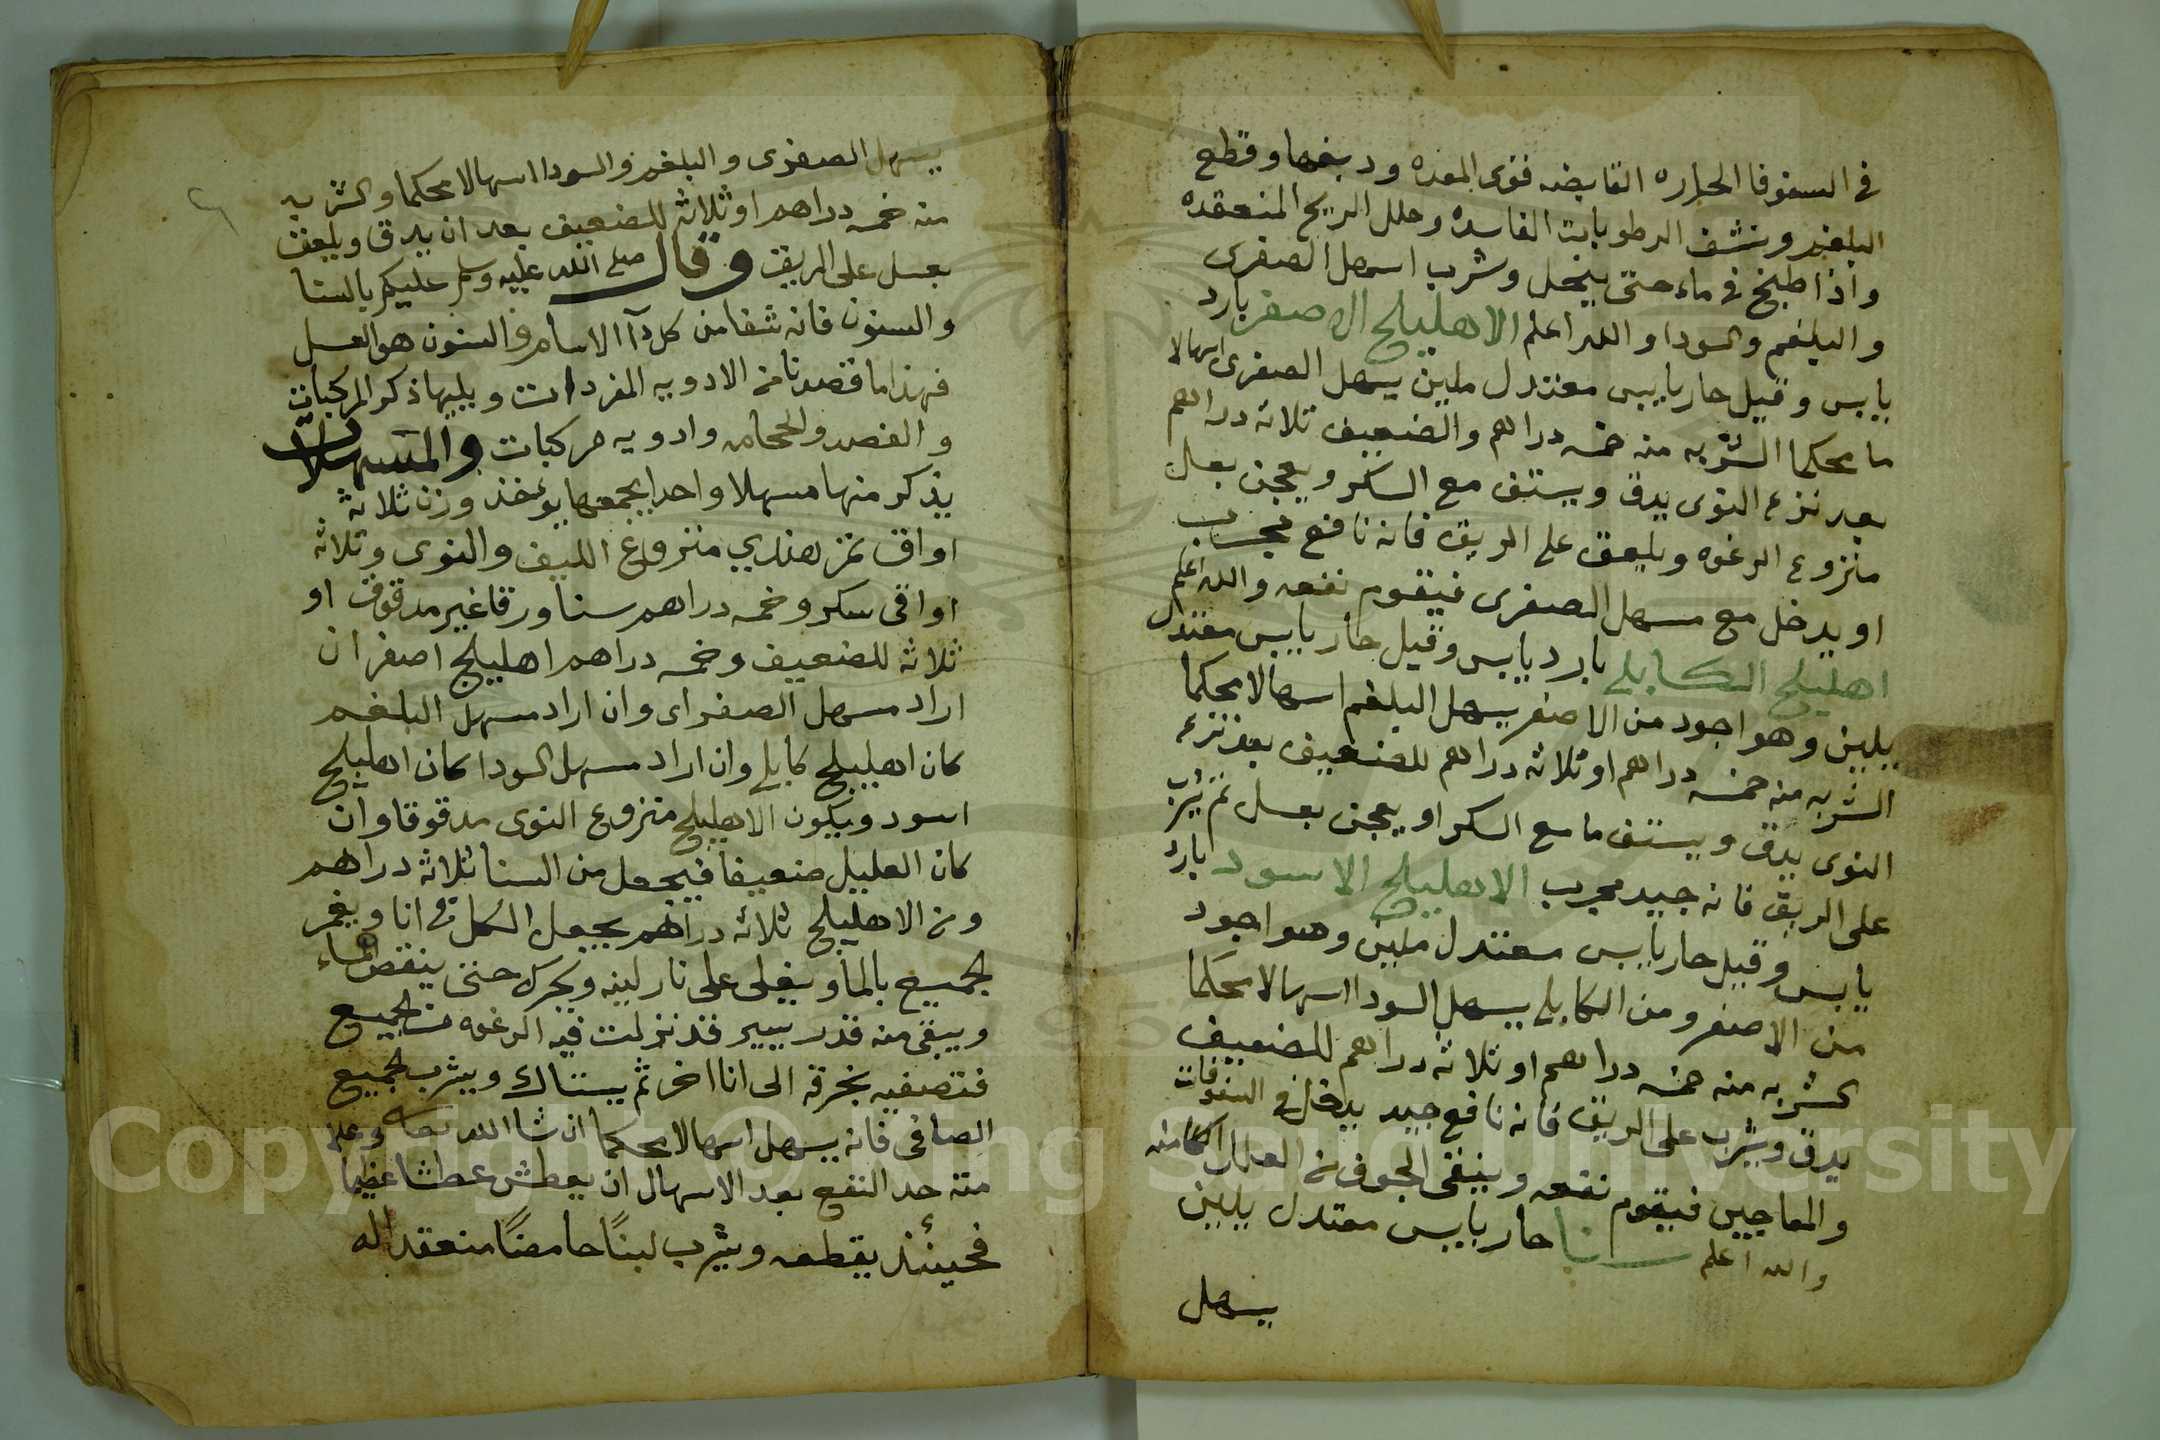 في السفوفا الحاره القابضه فقوى المعده ودبغها وقطع
البلغم وينشف الرطوبات الفاسده وحلل الريح المنعقده
واذا طبخ في ماء حتى ينحل وشرب اسهل الصفرى
والبلغم والسودا والله اعلم الاهليلج الاصفر بارد
يابس وقيل حار يابس معتدل ملين يسهل الصفرى اسهالا
ما محكما الشربه منه خمسه دراهم والضعيف ثلاثه دراهم
بعد نزع النوى يدق ويستف مع السكر ويعجن بعسل
منزوع الرغوه ويلعق على الريق فانه نافع مجرب
او يدخل مع مسهل الصفرى فيقوم نفعه والله اعلم
اهليلج الكابلي بارد يابس وقيل حار يابس معتدل
يلين وهو اجود من الاصفر يسهل البلغم اسهالا محكما
الشربه منه خمسه دراهم او ثلاثه دراهم للضعيف بعد نزع
النوى يدق ويستف ما مع السكر او يعجن بعسل ثم يشرب
على الريق فانه جيد مجرب الاهليلج الاسود بارد
يابس وقيل حار يابس معتدل ملين وهو اجود
من الاصفر ومن الكابلي يسهل السودا اسهالا محكما
الشربه منه خمسه دراهم او ثلاثه دراهم للضعيف
يدق ويشرب على الريق فانه نافع جيد يدخل في السفوفات
والمعاجين فيقوم نفعه وينقى الجوف من العلل الكامنه
والله اعلم سنا حار يابس معتدل يلين
يسهل
يسهل الصفرى والبلغم والسودا اسهالا محكما والشربه
منه خمسه دراهم او ثلاثه للضعيف بعد ان يدق ويلعق
بعسل على الريق وقال صلى الله عليه وسلم عليكم بالسنا
والسنوت فانه شفا من كل دآ الا السام والسنوت هو العسل
فهذا ما قصدنا من الادويه المفردات ويليها ذكر المركبات
والفصد والحجامه وادويه مركبات والمسهلات
يذكر منها مسهلا واحدا يجمعها يؤخذ وزن ثلاثه
اواق تمر هندي منزوع الليف والنوى وثلاثه
اواقى سكر وخمسه دراهم سنا ورقا غير مدقوق او
ثلاثه للضعيف وخمسه دراهم اهليلج اصفر ان
اراد مسهل الصفراى وان اراد مسهل البلغم
كان اهليلج كابلي وان اراد مسهل السودا كان اهليلج
اسود ويكون الاهليلج منزوع النوى مدقوقا وان
كان العليل ضعيفا فيجعل من السنا ثلاثه دراهم
ومن الاهليلج ثلاثه دراهم يجعل الكل في انا ويغمر
الجميع بالمآ ويغلى على نار لينه ويحرك حتى ينقص الماء
ويبقى منه قدر يسير قد نزلت فيه الرغوه من الجميع
فتصفيه بخرقه الى انا اخر ثم يستاك ويشرب الجميع
الصافى فانه يسهل اسهالا محكما ان شا الله تعالى وعلامه
منه حد النفع بعد الاسهال ان يعطش عطشا عظيما
فحينئذ يقطعه ويشرب لبنًا حامضًا منعقدا له
Copyright © King Saud University